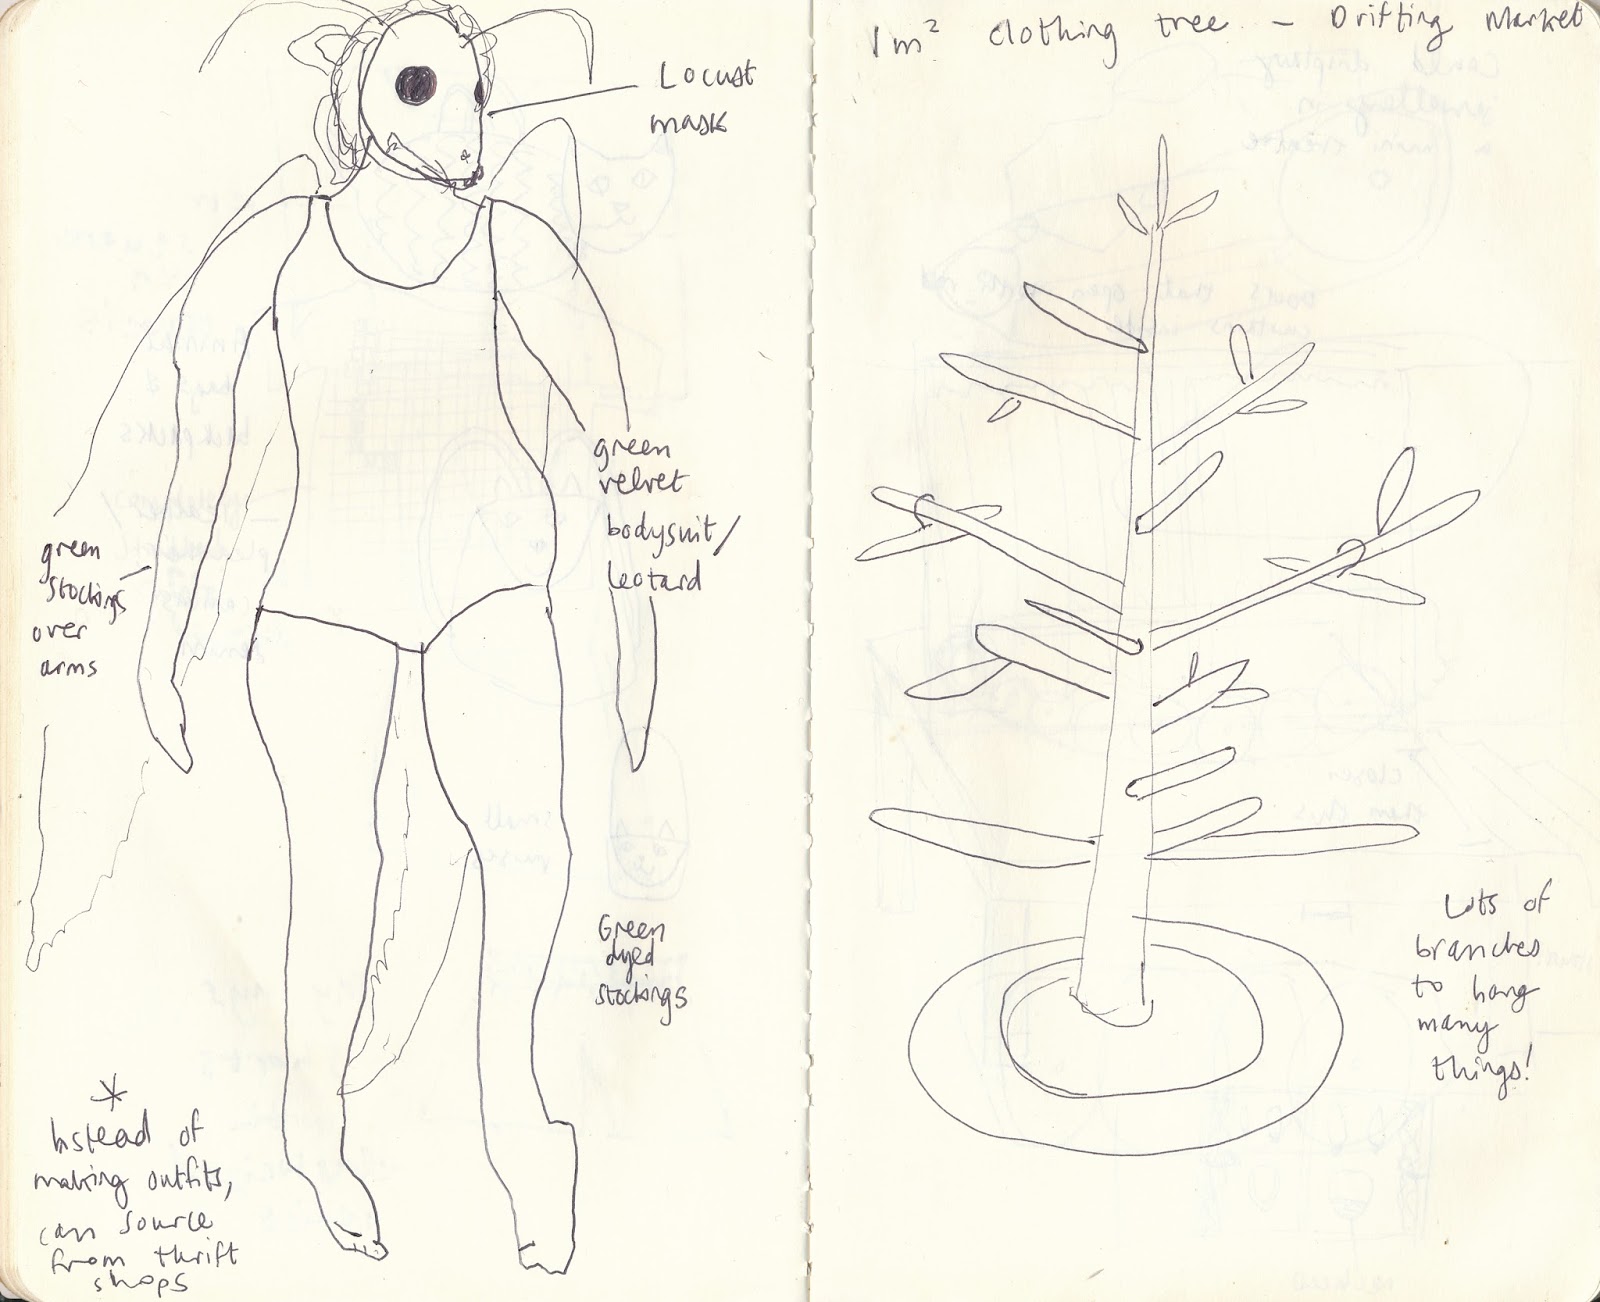 Locust
mask
green
velvet
bodysuit/
leotard
green
stockings
over
arms
Green
dyed
stockings
*
Instead of
making outfits,
can source
from thrift
shops
1m² clothing tree - Drifting Market
Lots of
branches
to hang
many
things!